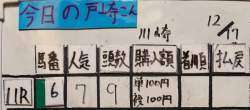 今日の戸崎さん
川崎 12/17
馬番 人気 頭数 購入額 着順 払戻
11R 6 7 9 単100円
複100円